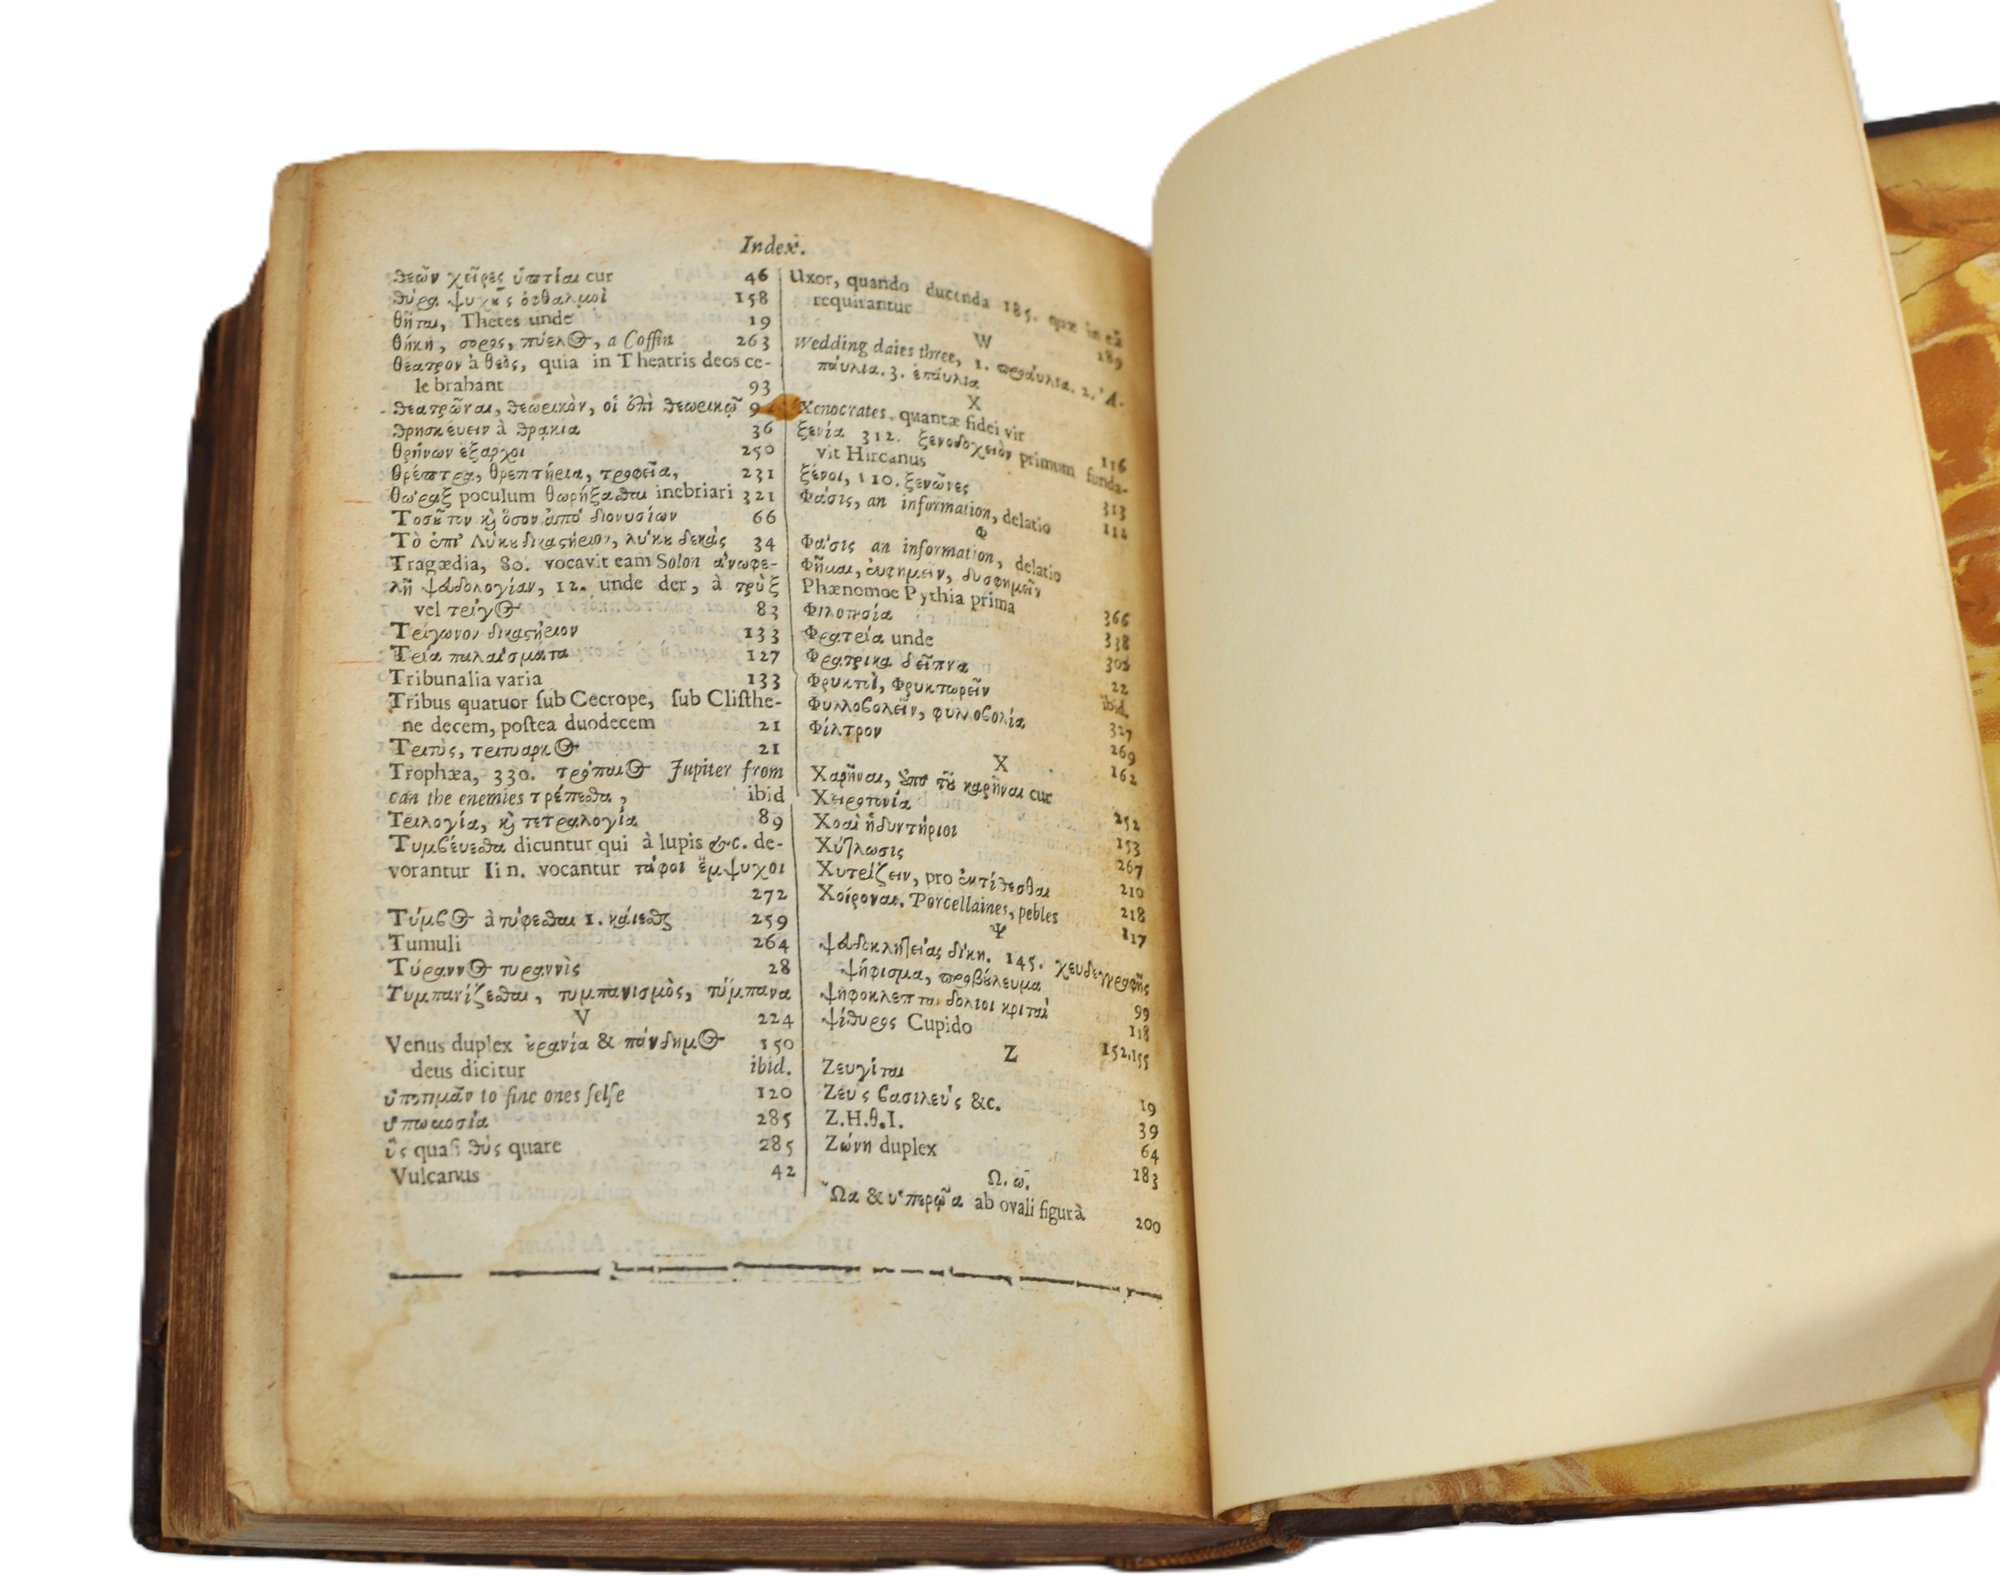 Index.
θεῶν χεῖρες ὑπτίαι cur 46
θύρα ψυχῆς ὀφθαλμοὶ 158
θῆται, Thetes unde 19
θήκη, σορος, πύελος, a Coffin 263
θέατρον à θεὸς, quia in Theatris deos ce-
lebrabant 93
θεατρῶναι, θεωρικὸν, οἱ ἐπὶ θεωρικῷ
θρησκέυειν à θρακια 36
θρήνων ἐξαρχοι 250
θρέπτρα, θρεπτήρια, τροφεῖα, 231
θώραξ poculum θωρήξαθαι inebriari 321
Τοσῦτον κὶ ὅσον ἀπό διονυσίων 66
Τὸ ἐπὶ Λύκυ δικαςήριον, λύκυ δεκὰς 34
Tragædia, 80. vocavit eam Solon ἀνωφε-
λῆ ψευδολογίαν, 12. unde der, à τρὺξ
vel τρίγος 83
Τρίγωνον δικαςήριον 133
Τρία παλαίσματα 127
Tribunalia varia 133
Tribus quatuor ſub Cecrope, ſub Cliſthe-
ne decem, poſtea duodecem 21
Τριτὺς, τριτυαρχος 21
Trophæa, 330. τρόπαιος Jupiter from
can the enemies τρέπεσθαι, ibid
Τριλογία, κὶ τετραλογία 89
Τυμβέυεσθαι dicuntur qui à lupis &c. de-
vorantur Iin. vocantur τάφοι ἔμψυχοι
272
Τύμβος à τύφεσθαι 1. κάιεσθαι 259
Tumuli 264
Τύραννος τυραννὶς 28
Τυμπανίζεσθαι, τυμπανισμὸς, τύμπανα
V 224
Venus duplex ὐρανία & πάνδημος 150
deus dicitur ibid.
ὑποτιμᾶν to fine ones ſelfe 120
ὑπωμοσία 285
ὗς quaſi θύς quare 285
Vulcanus 42
Uxor, quando ducenda 185. quæ in eâ
requirantur 189
W
Wedding daies three, 1. προάυλια. 2. Ἀ-
πάυλια. 3. ἐπάυλια
X
Xenocrates quantæ fidei vir 116
ξενία 312. ξενοδοχειὸν primum funda-
vit Hircanus 313
ξένοι, 110. ξενῶνες 112
Φάσις, an information, delatio
Φ
Φάσις an information, delatio
Φῆμαι, ἐυφημεῖν, δυσφημεῖν
Phænomoe Pythia prima 366
Φιλοτησία 338
Φρατρία unde 302
Φρατρικα δεῖπνα 22
Φρυκτοὶ, Φρυκτωρεῖν ibid.
Φυλλοβολεῖν, φυλλοβολία 327
Φίλτρον 269
X 162
Χαρῆναι, ὑπὸ τῦ καρῆναι cur
Χειροτονία 252
Χοαὶ ἡδυντήριοι 153
Χύτλωσις 267
Χυτρίζειν, pro ἐκτίθεσθαι 210
Χοίροναι. Porcellaines, pebles 218
Ψ 117
ψευδοκλητείας δίκη. 145. χευδεγγραφῆς
ψήφισμα, προβύλευμα 99
ψηφοκλεπται δολιοι κριταὶ 118
ψίθυρος Cupido 152,155
Z
Ζευγίται 19
Ζεὺς βασιλεύς &c. 39
Z.H.θ.I. 64
Ζώνη duplex 183
Ω. ω.
Ὦα & ὑπερῷα ab ovali figurà 200